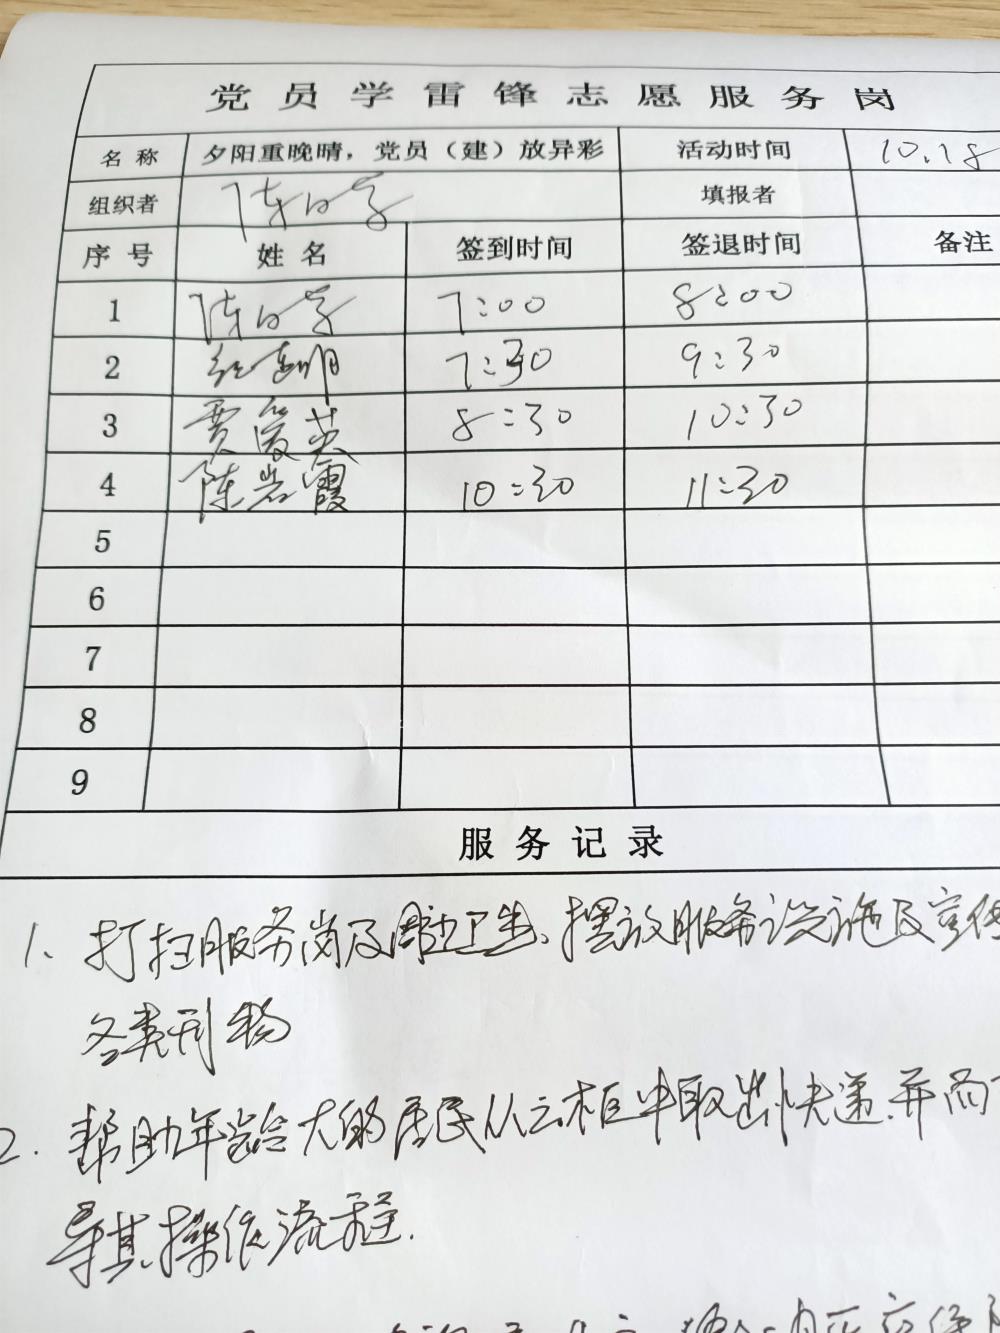 党员学雷锋志愿服务岗
名称 夕阳重晚晴，党员（建）放异彩 活动时间 10.18
组织者 填报者
序号 姓名 签到时间 签退时间 备注
1 7:00 8:00
2 7:30 9:30
3 贾爱英 8:30 10:30
4 陈岩霞 10:30 11:30
5
6
7
8
9
服务记录
1、打扫服务岗及周边卫生、摆放服务设施及宣传
各类刊物
2.帮助年龄大的居民从云柜中取出快递.并而
导其操作流程.